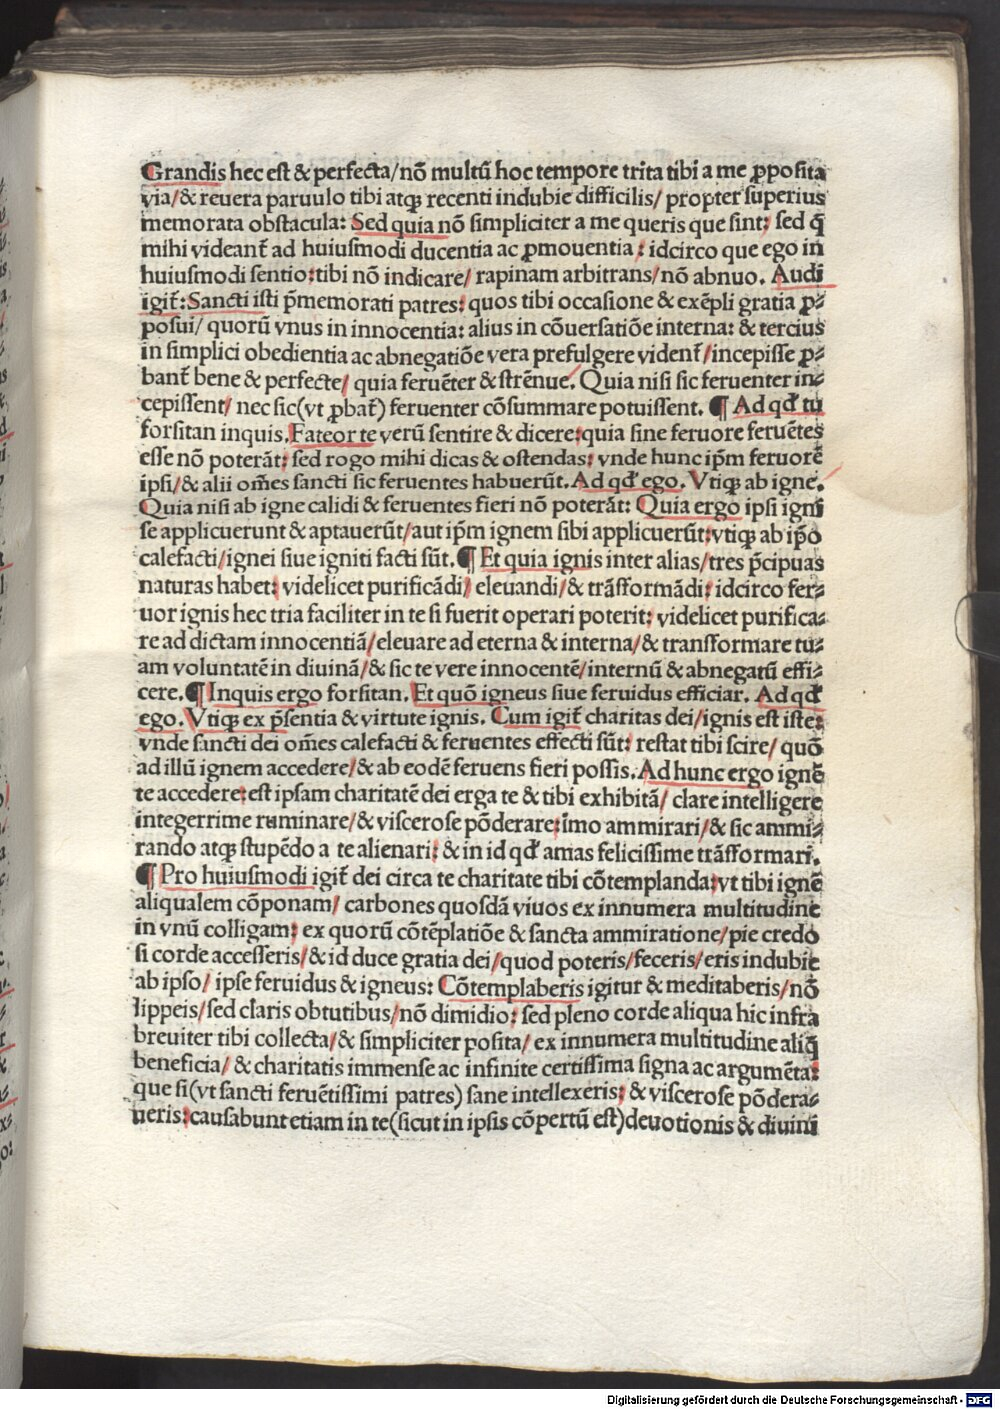 Grandis hec est & perfecta/nō multū hoc tempore trita tibi a me ꝓposita
via/& reuera paruulo tibi atqȝ recenti indubie difficilis/ propter superius
memorata obstacula: Sed quia nō simpliciter a me queris que sint: sed q̄
mihi videant̄ ad huiusmodi ducentia ac ꝓmouentia: idcirco que ego in
huiusmodi sentio: tibi nō indicare/ rapinam arbitrans/nō abnuo. Audi
igit̄: Sancti isti p̄memorati patres: quos tibi occasione & exēpli gratia ꝓ⸗
posui/ quorū vnus in innocentia: alius in cōuersatiōe interna: & tercius
in simplici obedientia ac abnegatiōe vera prefulgere vident̄/incepisse ꝓ⸗
bant̄ bene & perfecte/ quia feruēter & strēnue. Quia nisi sic feruenter in⸗
cepissent/ nec sic(vt ꝓbat̄) feruenter cōsummare potuissent. ¶ Ad qd̄ tu
forsitan inquis. Fateor te verū sentire & dicere: quia sine feruore feruētes
esse nō poterāt: sed rogo mihi dicas & ostendas: vnde hunc ip̄m feruorē
ipsi/& alii om̄es sancti sic feruentes habuerūt. Ad qd̄ ego. Vtiqȝ ab igne.
Quia nisi ab igne calidi & feruentes fieri nō poterāt: Quia ergo ipsi igni
se applicuerunt & aptauerūt/aut ip̄m ignem sibi applicuerūt: vtiqȝ ab ip̄o
calefacti/ignei siue igniti facti sūt. ¶ Et quia ignis inter alias/tres p̄cipuas
naturas habet: videlicet purificādi/ eleuandi/& trāsformādi: idcirco fer⸗
uor ignis hec tria faciliter in te si fuerit operari poterit: videlicet purifica⸗
re ad dictam innocentiā/eleuare ad eterna & interna/& transformare tu⸗
am voluntatē in diuinā/& sic te vere innocentē/internū & abnegatū effi⸗
cere. ¶ Inquis ergo forsitan. Et quō igneus siue feruidus efficiar. Ad qd̄
ego. Vtiqȝ ex p̄sentia & virtute ignis. Cum igit̄ charitas dei/ignis est iste:
vnde sancti dei om̄es calefacti & feruentes effecti sūt: restat tibi scire/ quō
ad illū ignem accedere/& ab eodē feruens fieri possis. Ad hunc ergo ignē
te accedere: est ipsam charitatē dei erga te & tibi exhibitā/ clare intelligere
integerrime ruminare/& viscerose pōderare: īmo ammirari/& sic ammi⸗
rando atqȝ stupēdo a te alienari: & in id qd̄ amas felicissime trāsformari.
¶ Pro huiusmodi igit̄ dei circa te charitate tibi cōtemplanda: vt tibi ignē
aliqualem cōponam/ carbones quosdā viuos ex innumera multitudine
in vnū colligam: ex quorū cōtēplatiōe & sancta ammiratione/pie credo
si corde accesseris/& id duce gratia dei/quod poteris/feceris/eris indubie
ab ipso/ ipse feruidus & igneus: Cōtemplaberis igitur & meditaberis/nō
lippeis/sed claris obtutibus/nō dimidio: sed pleno corde aliqua hic infra
breuiter tibi collecta/& simpliciter posita/ ex innumera multitudine aliq̄
beneficia/ & charitatis immense ac infinite certissima signa ac argumēta:
que si(vt sancti feruētissimi patres) sane intellexeris: & viscerose pōdera⸗
ueris: causabunt etiam in te(sicut in ipsis cōpertū est)deuotionis & diuini
Digitalisierung gefördert durch die Deutsche Forschungsgemeinschaft - DFG